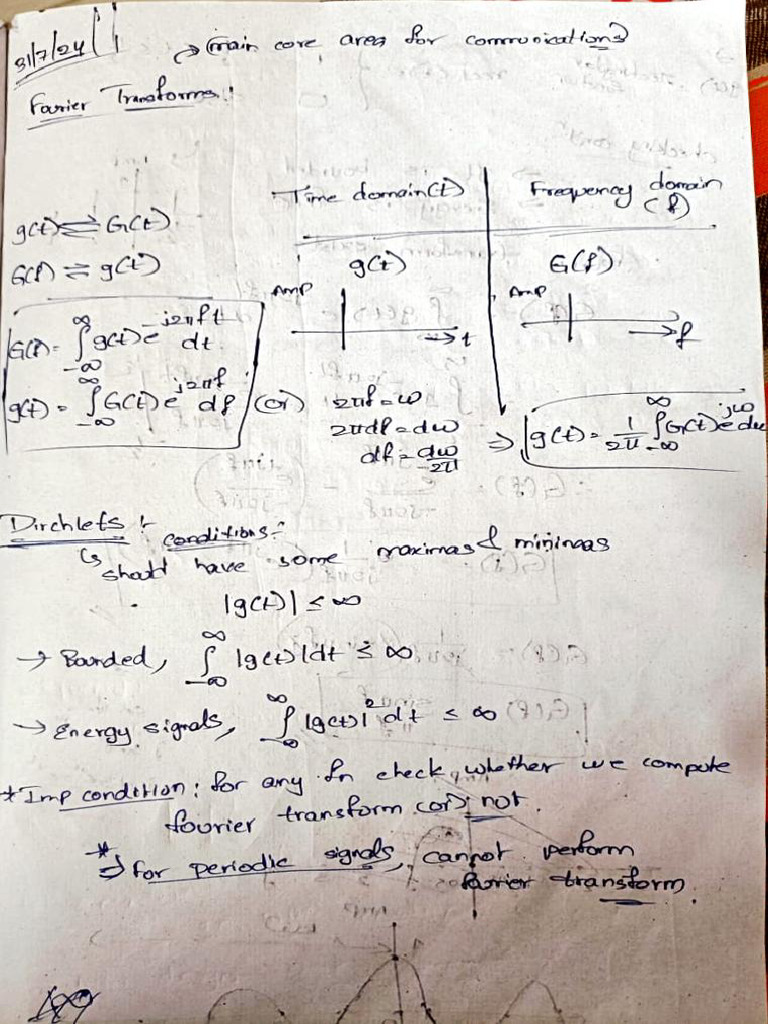 31/7/24
→ (main core area for communications)
Fourier Transforms:
Time domain(t)
Frequency domain (f)
g(t) ⇌ G(t)
G(f) ⇌ g(t)
g(t)
G(f)
Amp
→ t
Amp
→ f
G(f) = ∫_{-∞}^{∞} g(t) e^{-j2πft} dt
g(t) = ∫_{-∞}^{∞} G(t) e^{j2πf} df (or)
2πf = ω
2πdf = dω
df = dω/2π
⇒ g(t) = 1/2π ∫_{-∞}^{∞} G(t) e^{jω} dω
Dirchlets : conditions:-
↳ should have some maximas & minimaas
|g(t)| ≤ ∞
→ Bounded, ∫_{-∞}^{∞} |g(t)| dt ≤ ∞
→ Energy signals, ∫_{-∞}^{∞} |g(t)|² dt ≤ ∞
*Imp condition: for any fn check, whether we compute
fourier transform (or) not.
*⇒ for periodic signals, cannot perform
fourier transform.